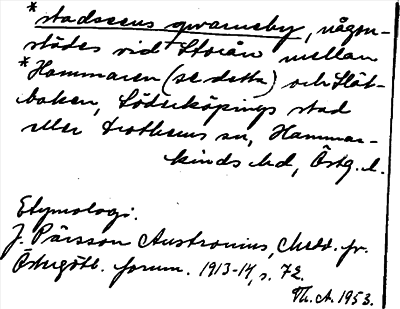 *stadssens qwarneby, någon-
städes vid Storån mellan
*Hammaren (se detta) och Slät-
baken, Söderköpings stad
eller Drothems sn, Hammar-
kinds hd, Östg. l.
Etymologi.
J. Pärsson Austronius, Medd. fr.
Östergötl. fornm. 1913-14, s. 72.
Th. A. 1953.